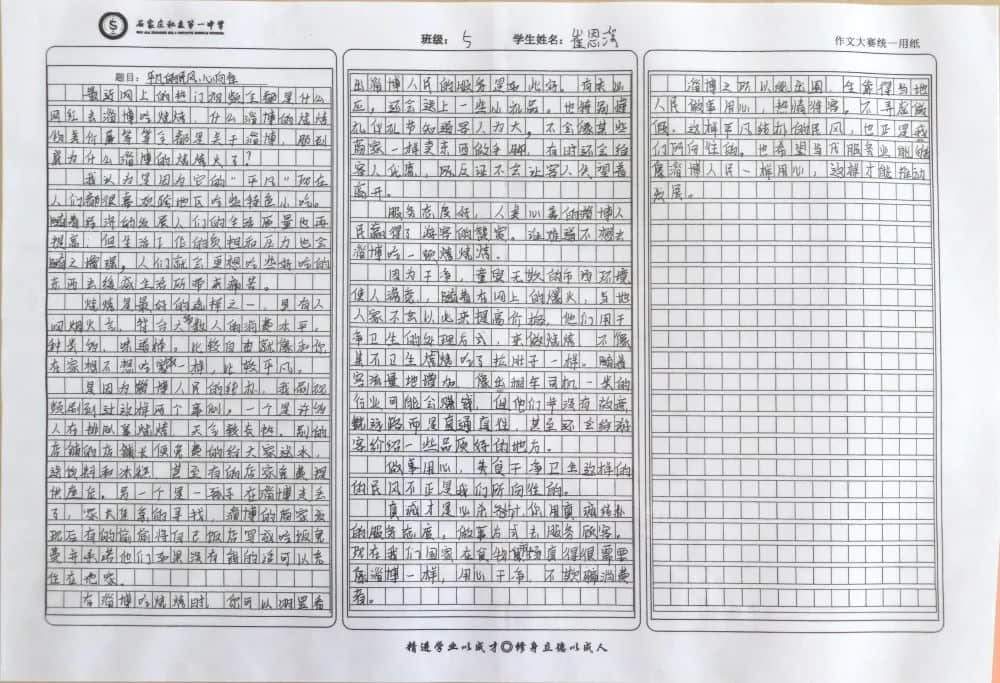 石家庄私立第一中学
班级：5 学生姓名：崔恩
作文大赛统一用纸
题目：平凡的民风，心向往
最近网上的热门视频全都是什么
网红去淄博吃烧烤，什么淄博的烧烤
物美价廉等等全都是关于淄博，
竟为什么淄博的烧烤火了？
我认为是因为它的“平凡”现在
人们都很喜欢各地区吃些特色小吃。
随着经济的发展人们的生活质量也再
提高，但生活工作的负担和压力也会
随之增强，人们就会更想吃些好吃的
东西去缓解生活所带来痛苦。
烧烤是最好的选择之一，具有人
间烟火气，符合大多数人的消费水平，
种类多，味道棒，比较自由就像和你
在家想不想吃 一样，比较平凡。
是因为淄博人民的转，我刷视
频刷到过这样两个事例。一个是许多
人在排队等烧烤，天气较炎热。别的
店铺的店铺长便免费的给大家送水，
送饮料和冰糕，甚至有的店家免费提
供座位。另一个是一孩子在淄博走丢
了，家人焦急的寻找，淄博的商家发
现后有的偷偷将自己饭店里或吃饭免
费并承诺他们如果没有钱的话可以免
住在他家。
在淄博吃烧烤时，你可以明显看
出淄博人民的服务是如此好。有求必
应，还会送上一些小礼品。也特别遵
礼仪礼节知道客人为大。不会像某些
商家一样卖东西做手脚，有时还会给
客人优惠，所反证不会让客人失望着
离开。
服务态度好，人美心善的淄博人
民赢得了游客的赞赏。谁难道不想去
淄博吃一顿烧烤。
因为干净，童叟无欺的市内环境
使人满意，随着在网上的爆火，当地
人家不会以此来提高价格，他们用干
净卫生的处理方式，来做烧烤，不像
某不卫生烧烤吃了拉肚子一样。随着
客流量地增加，像出租车司机一类的
行业可能会赚钱，但他们并没有故意
绕远路而是直通直往，甚至还会给游
客介绍一些品质好的地方。
做事用心，朱良干净卫生这样的
的民风不正是我们所向往的。
真诚才是必杀技！你用真诚结朴
的服务态度，做事方式去服务顾客。
现在我们国家在食物市场真得很需要
像淄博一样，用心干净，不欺骗消费
者。
淄博之所以能出圈，全靠得当地
人民做事用心，热情待客。不弄虚做
假，这样平凡结朴的民风，也正是我
们所向往的。也希望当代服务业能够
像淄博人民一样用心，这样才能推动
发展。
精进学业以成才 修身立德以成人